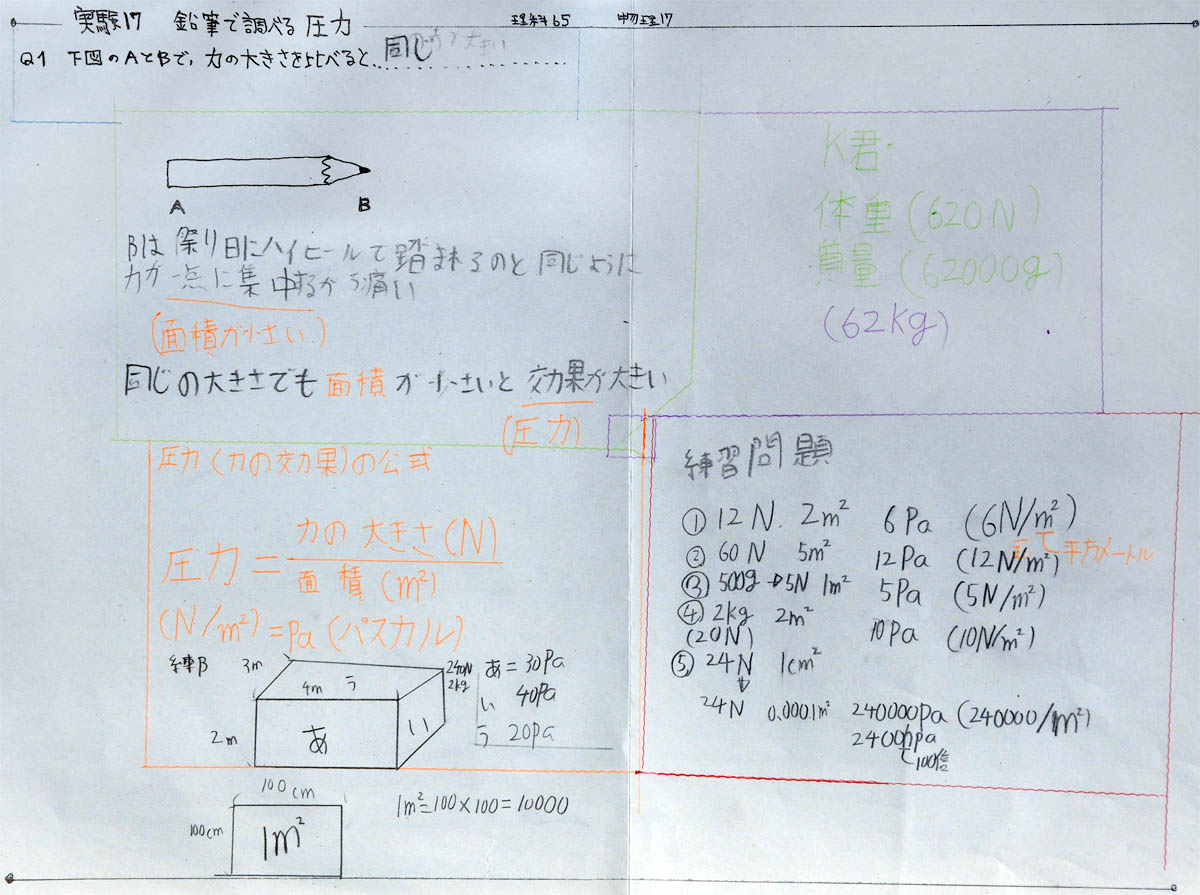 実験17 鉛筆で調べる圧力 理科65 物理17
Q1 下図のAとBで、力の大きさを比べると 同じ
A B
Bは祭り日にハイヒールで踏まれるのと同じように
力が一点に集中するから痛い
(面積が小さい)
同じの大きさでも面積が小さいと効果が大きい
(圧力)
K君
体重(620N)
質量(62000g)
(62kg)
圧力(力の効果)の公式
圧力=力の大きさ(N)/面積(m²)
(N/m²)=Pa(パスカル)
練B 3m 4m う 240N
2kg
2m あ い
あ=30Pa
い 40Pa
う 20Pa
100cm
100cm 1m²
1m²=100×100=10000
練習問題
① 12N 2m² 6Pa (6N/m²)
平方メートル
② 60N 5m² 12Pa (12N/m²)
③ 500g→5N 1m² 5Pa (5N/m²)
④ 2kg 2m² 10Pa (10N/m²)
(20N)
⑤ 24N 1cm²
↓
24N 0.0001m² 240000Pa (240000/m²)
2400hPa
100倍